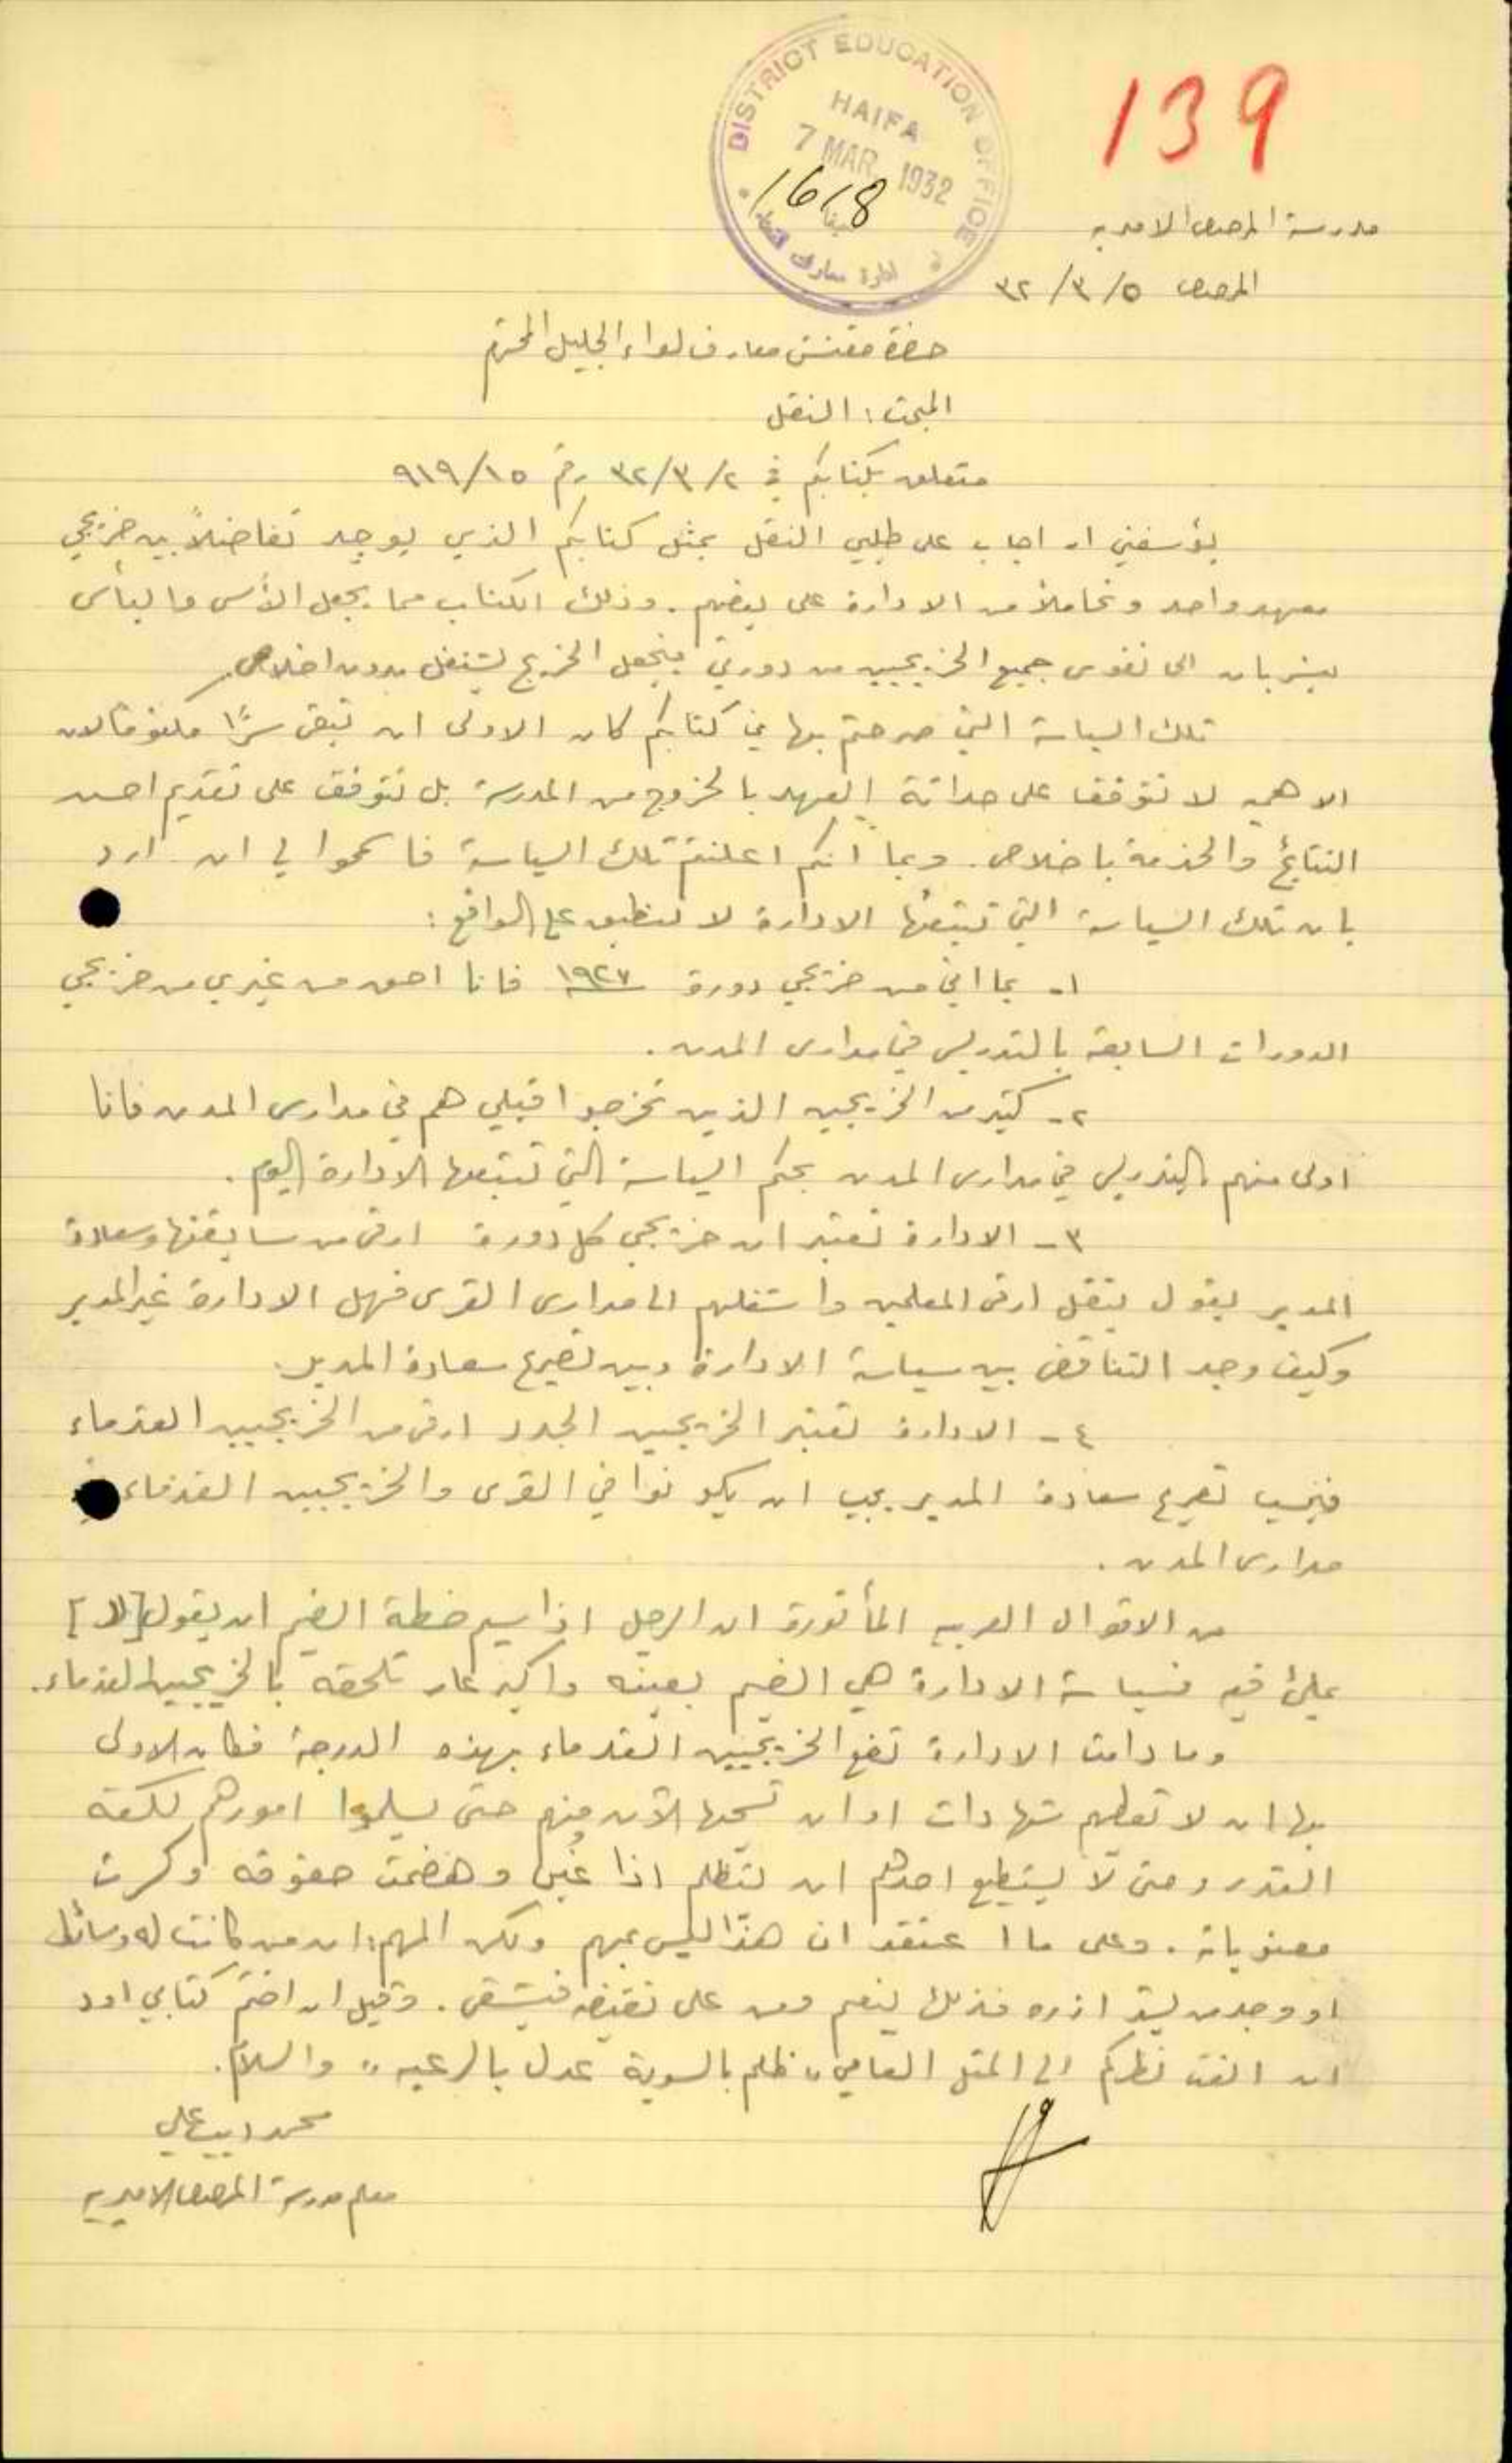 139
DISTRICT EDUCATION OFFICE
HAIFA
7 MAR 1932
1618
حيفا
ادارة معارف
مدرسة المرصص الاميرية
المرصص ٥/٣/٣٢
حضرة مفتش معارف لواء الجليل المحترم
المبحث: النقل
متعلق بكتابكم في ٢/٣/٣٢ رقم ٩١٩/١٥
يؤسفني ان اجاب على طلبي النقل بمثل كتابكم الذي يوجد تفاضلاً بين خريجي
معهد واحد وتحاملاً من الادارة على بعضهم. وذلك الكتاب مما يجعل الأسى واليأس
يسربان الى نفوس جميع الخريجيين من دورتي فيجعل الخريج يشتغل بدون اخلاص.
تلك السياسة التي صرحتم بها في كتابكم كان الاولى ان تبقى سرًا مكنوناً لان
الاهمية لا تتوقف على حداثة العهد بالخروج من المدرسة بل تتوقف على تقديم احسن
النتائج والخدمة باخلاص. وبما انكم اعلنتم تلك السياسة فاسمحوا لي ان ارد
بان تلك السياسة التي تتبعها الادارة لا تنطبق على الواقع:
١- بما اني من خريجي دورة ١٩٢٧ فانا احق من غيري من خريجي
الدورات السابقة بالتدريس في مدارس المدن.
٢- كثير من الخريجين الذين تخرجوا قبلي هم في مدارس المدن فانا
اولى منهم بالتدريس في مدارس المدن بحكم السياسة التي تتبعها الادارة اليوم.
٣- الادارة تعتبر ان خريجي كل دورة ارقى من سابقتها وسعادة
المدير يقول بنقل ارقى المعلمين وانشطهم الى مدارس القرى فهل الادارة غير المدير
وكيف وجد التناقض بين سياسة الادارة وبين تصريح سعادة المدير.
٤- الادارة تعتبر الخريجيين الجدد ارقى من الخريجيين القدماء
فبحسب تصريح سعادة المدير يجب ان يكونوا في القرى والخريجيين القدماء في
مدارس المدن.
من الاقوال العربية المأثورة ان الرجل اذا سيم خطة الضيم ان يقول [لا]
بملئ فيه فسياسة الادارة هي الضيم بعينه واكبر عار تلحقه بالخريجيين القدماء.
وما دامت الادارة تضع الخريجيين القدماء بهذه الدرجة فكان الاولى
بها ان لا تعطهم شهادات او ان تسحبها الآن منهم حتى يسلموا امورهم لكفة
القدر وحتى لا يستطيع احدهم ان يتظلم اذا غُبن وهضمت حقوقه وكسرت
معنوياته. وعلى ما اعتقد ان هذا ليس بمهم ولكن المهم: ان من كانت له وسائط
او وجد من يشد ازره فذلك ينعم ومن على نقيضه فيشقى. وقبل ان اختم كتابي اود
ان الفت نظركم الى المثل العامي "ظلم بالسوية عدل بالرعية" والسلام.
محمد اديب علي
معلم مدرسة المرصص الاميرية